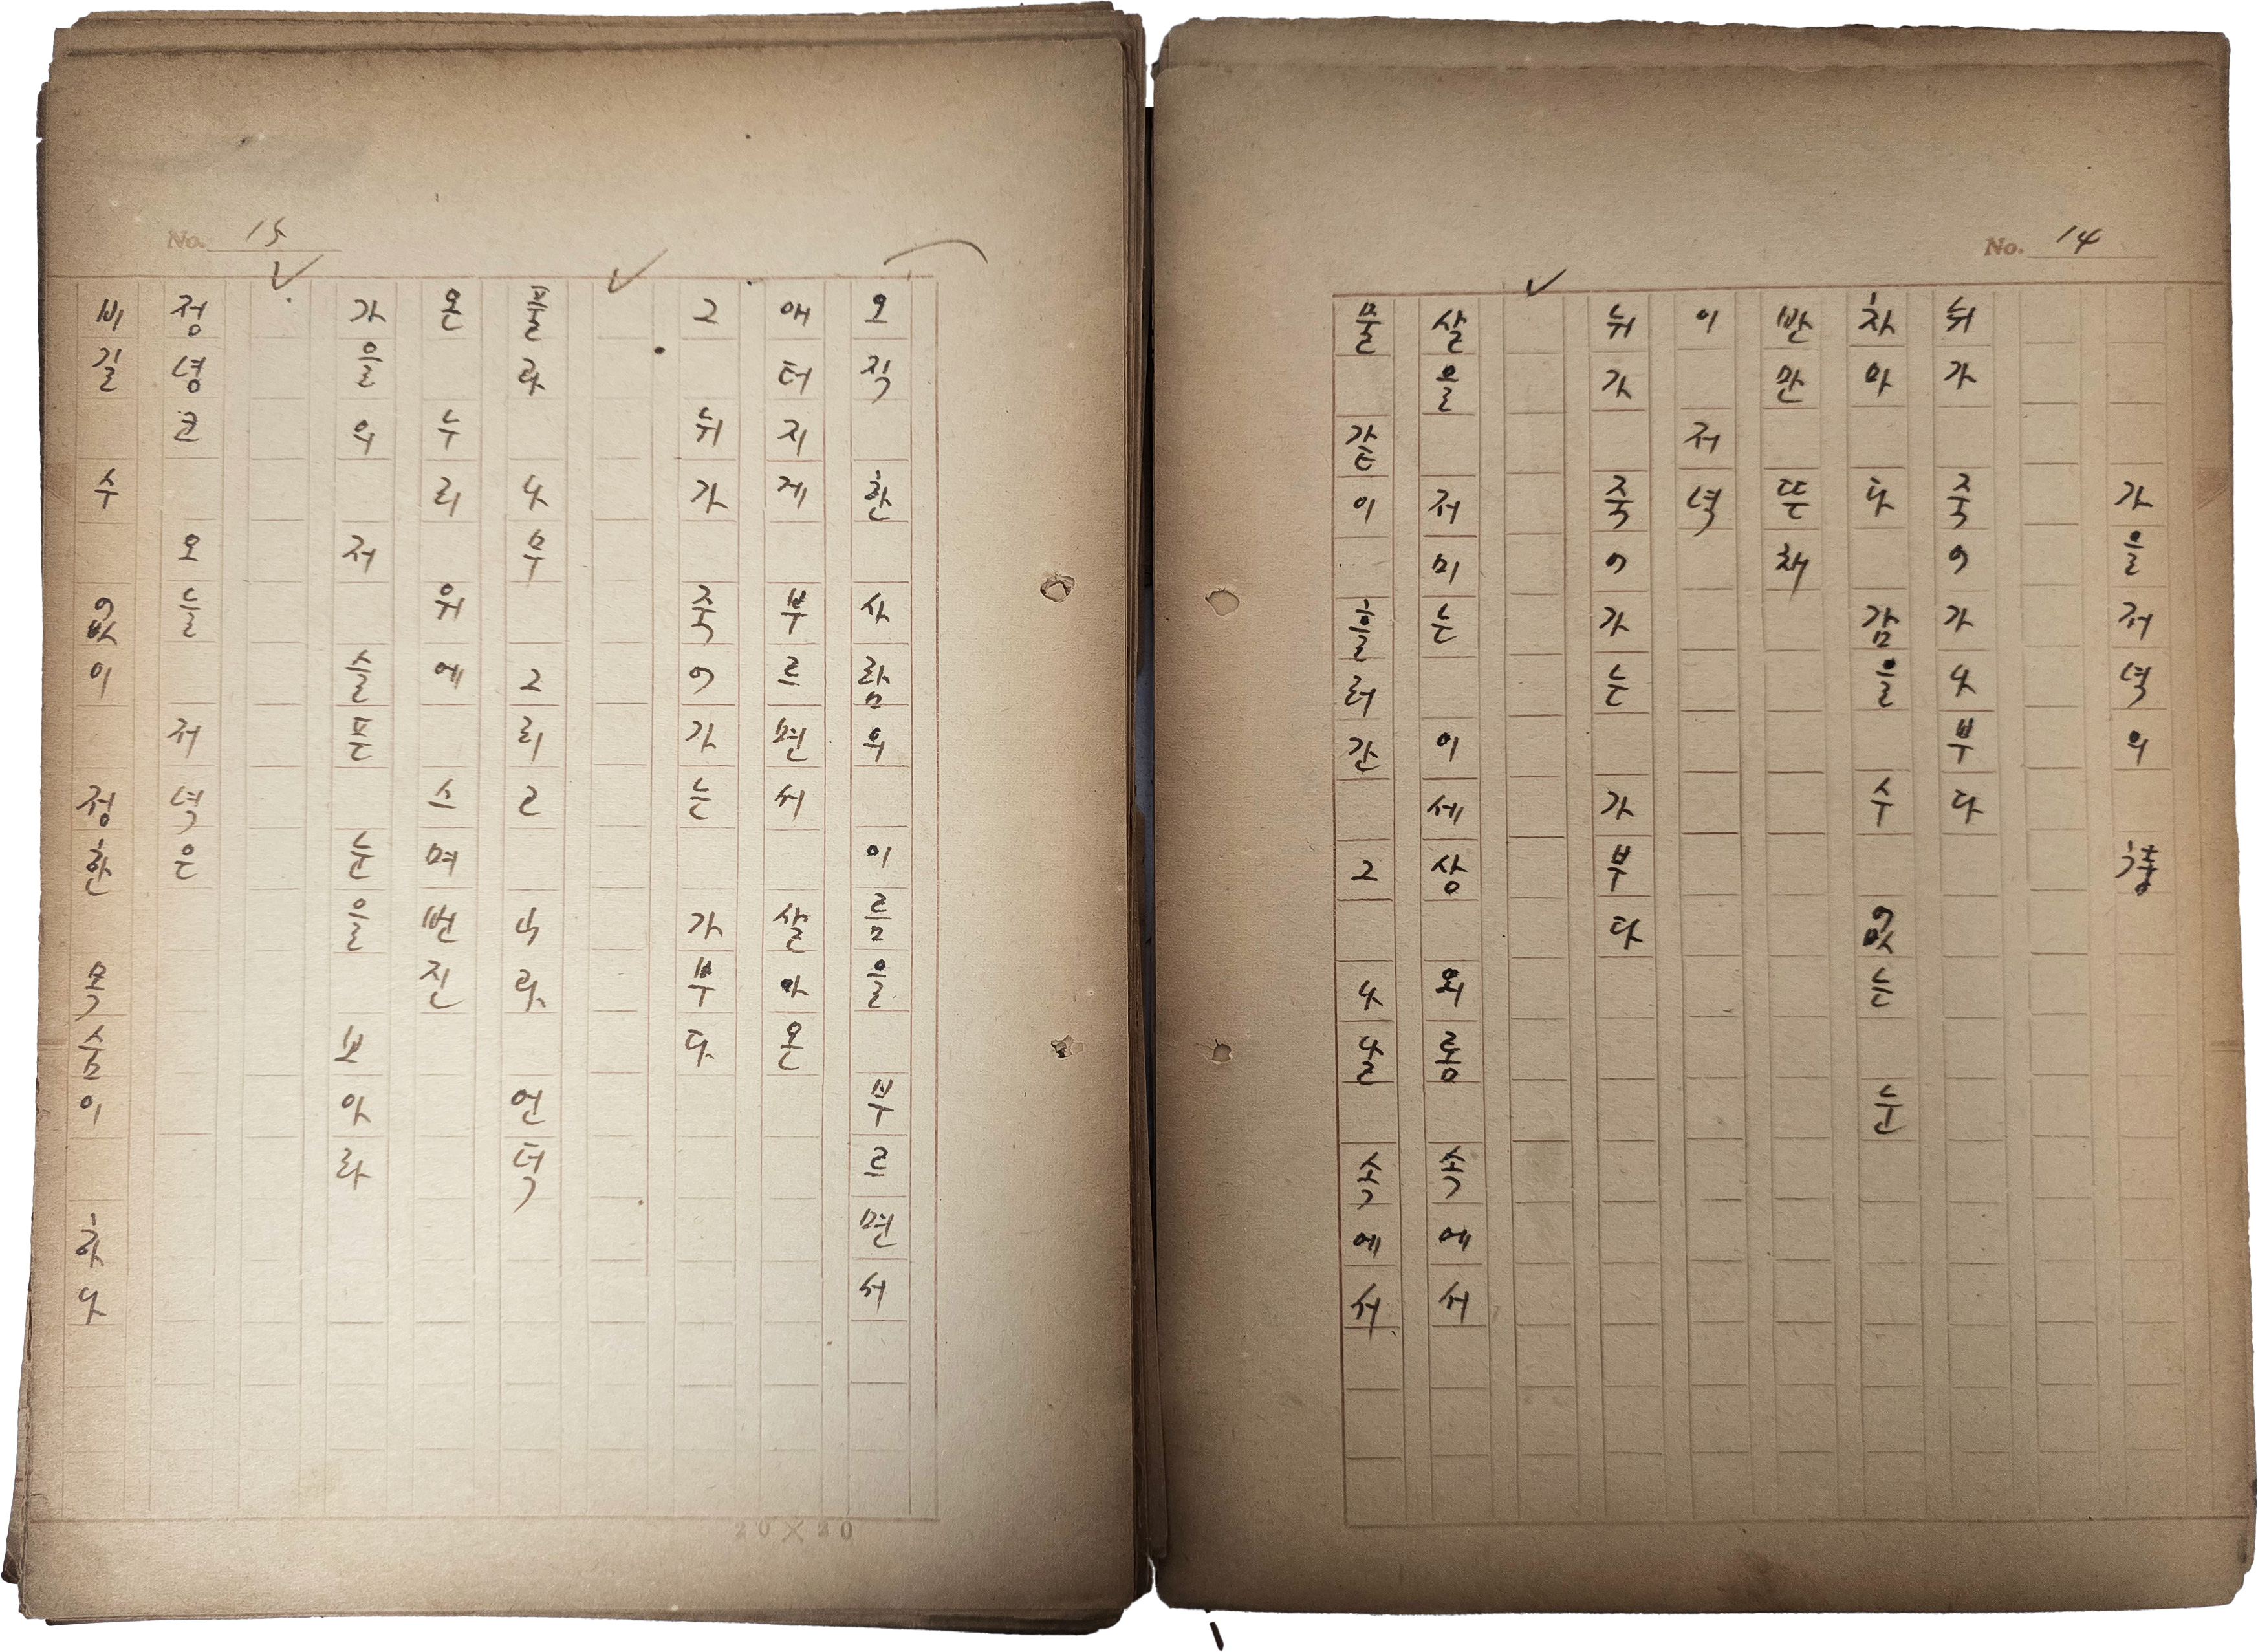 No. 14
가을저녁의 詩
뉘가 죽어가나부다
차마 다 감을 수 없는 눈
반만 뜬채
이 저녁
뉘가 죽어가는 가부다
살을 저미는 이세상 외롬 속에서
물 같이 흘러간 그 나날 속에서
No. 15
오직 한 사람의 이름을 부르면서
애터지게 부르면서 살아온
그 뉘가 죽어가는 가부다
풀과 나무 그리고 산과 언덕
온 누리 위에 스며번진
가을의 저 슬픈 눈을 보아라
정녕코 오늘 저녁은
비길 수 없이 정한 목숨이 하나
20×20